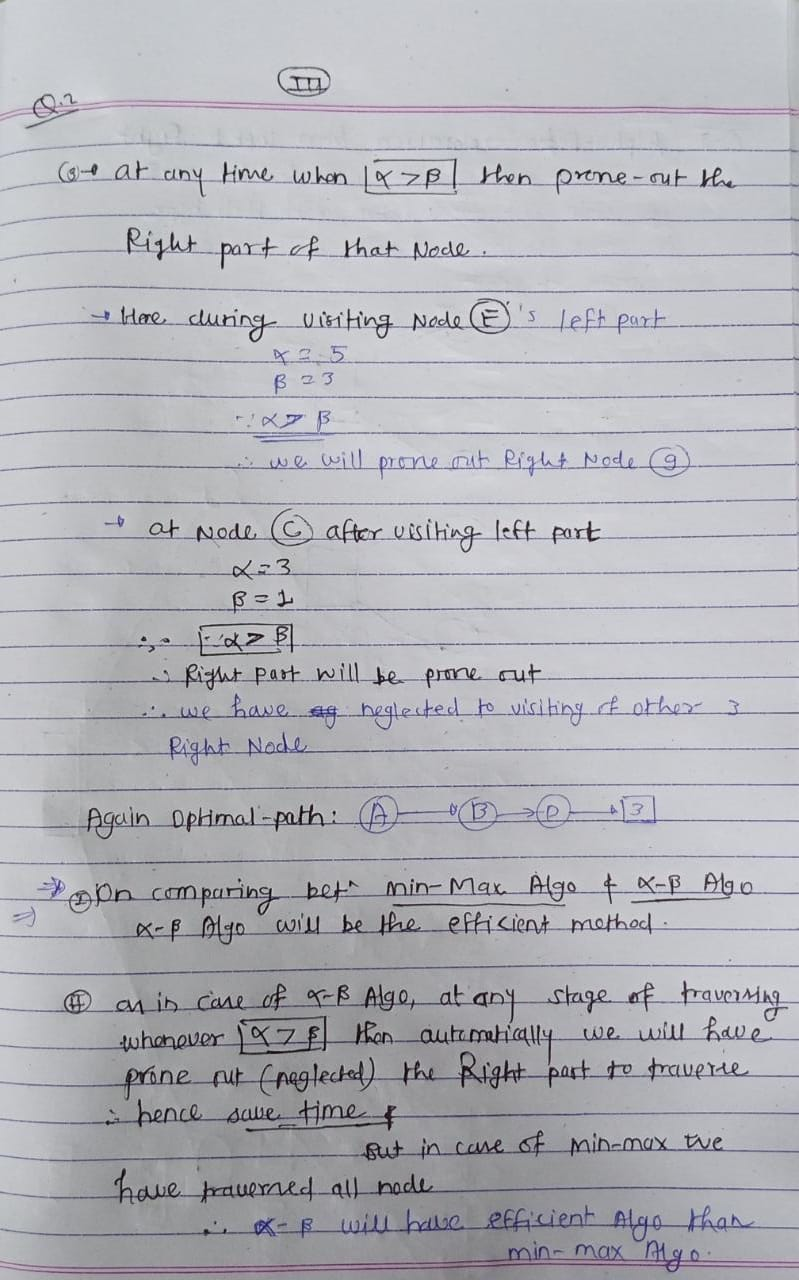 III
Q.2
(3)→ at any time when α>β then prone-out the
Right part of that Node.
→ Here during visiting Node E's left part
α = 5
β = 3
∵ α > β
∴ we will prone out Right Node 9
→ at Node C after visiting left part
α = 3
β = 1
∴ ∵ α > β
∴ Right part will be prone out
∴ we have neglected to visiting of other 3
Right Node
Again Optimal-path: A → B → D → 3
⇒ I On comparing betn Min-Max Algo & α-β Algo
⇒ α-β Algo will be the efficient method.
II as in case of α-β Algo, at any stage of traversing
whenever α > β then automatically we will have
prone out (neglected) the Right part to traverse
∴ hence save time &
But in case of min-max we
have traversed all node
∴ α-β will have efficient Algo than
min-max Algo.